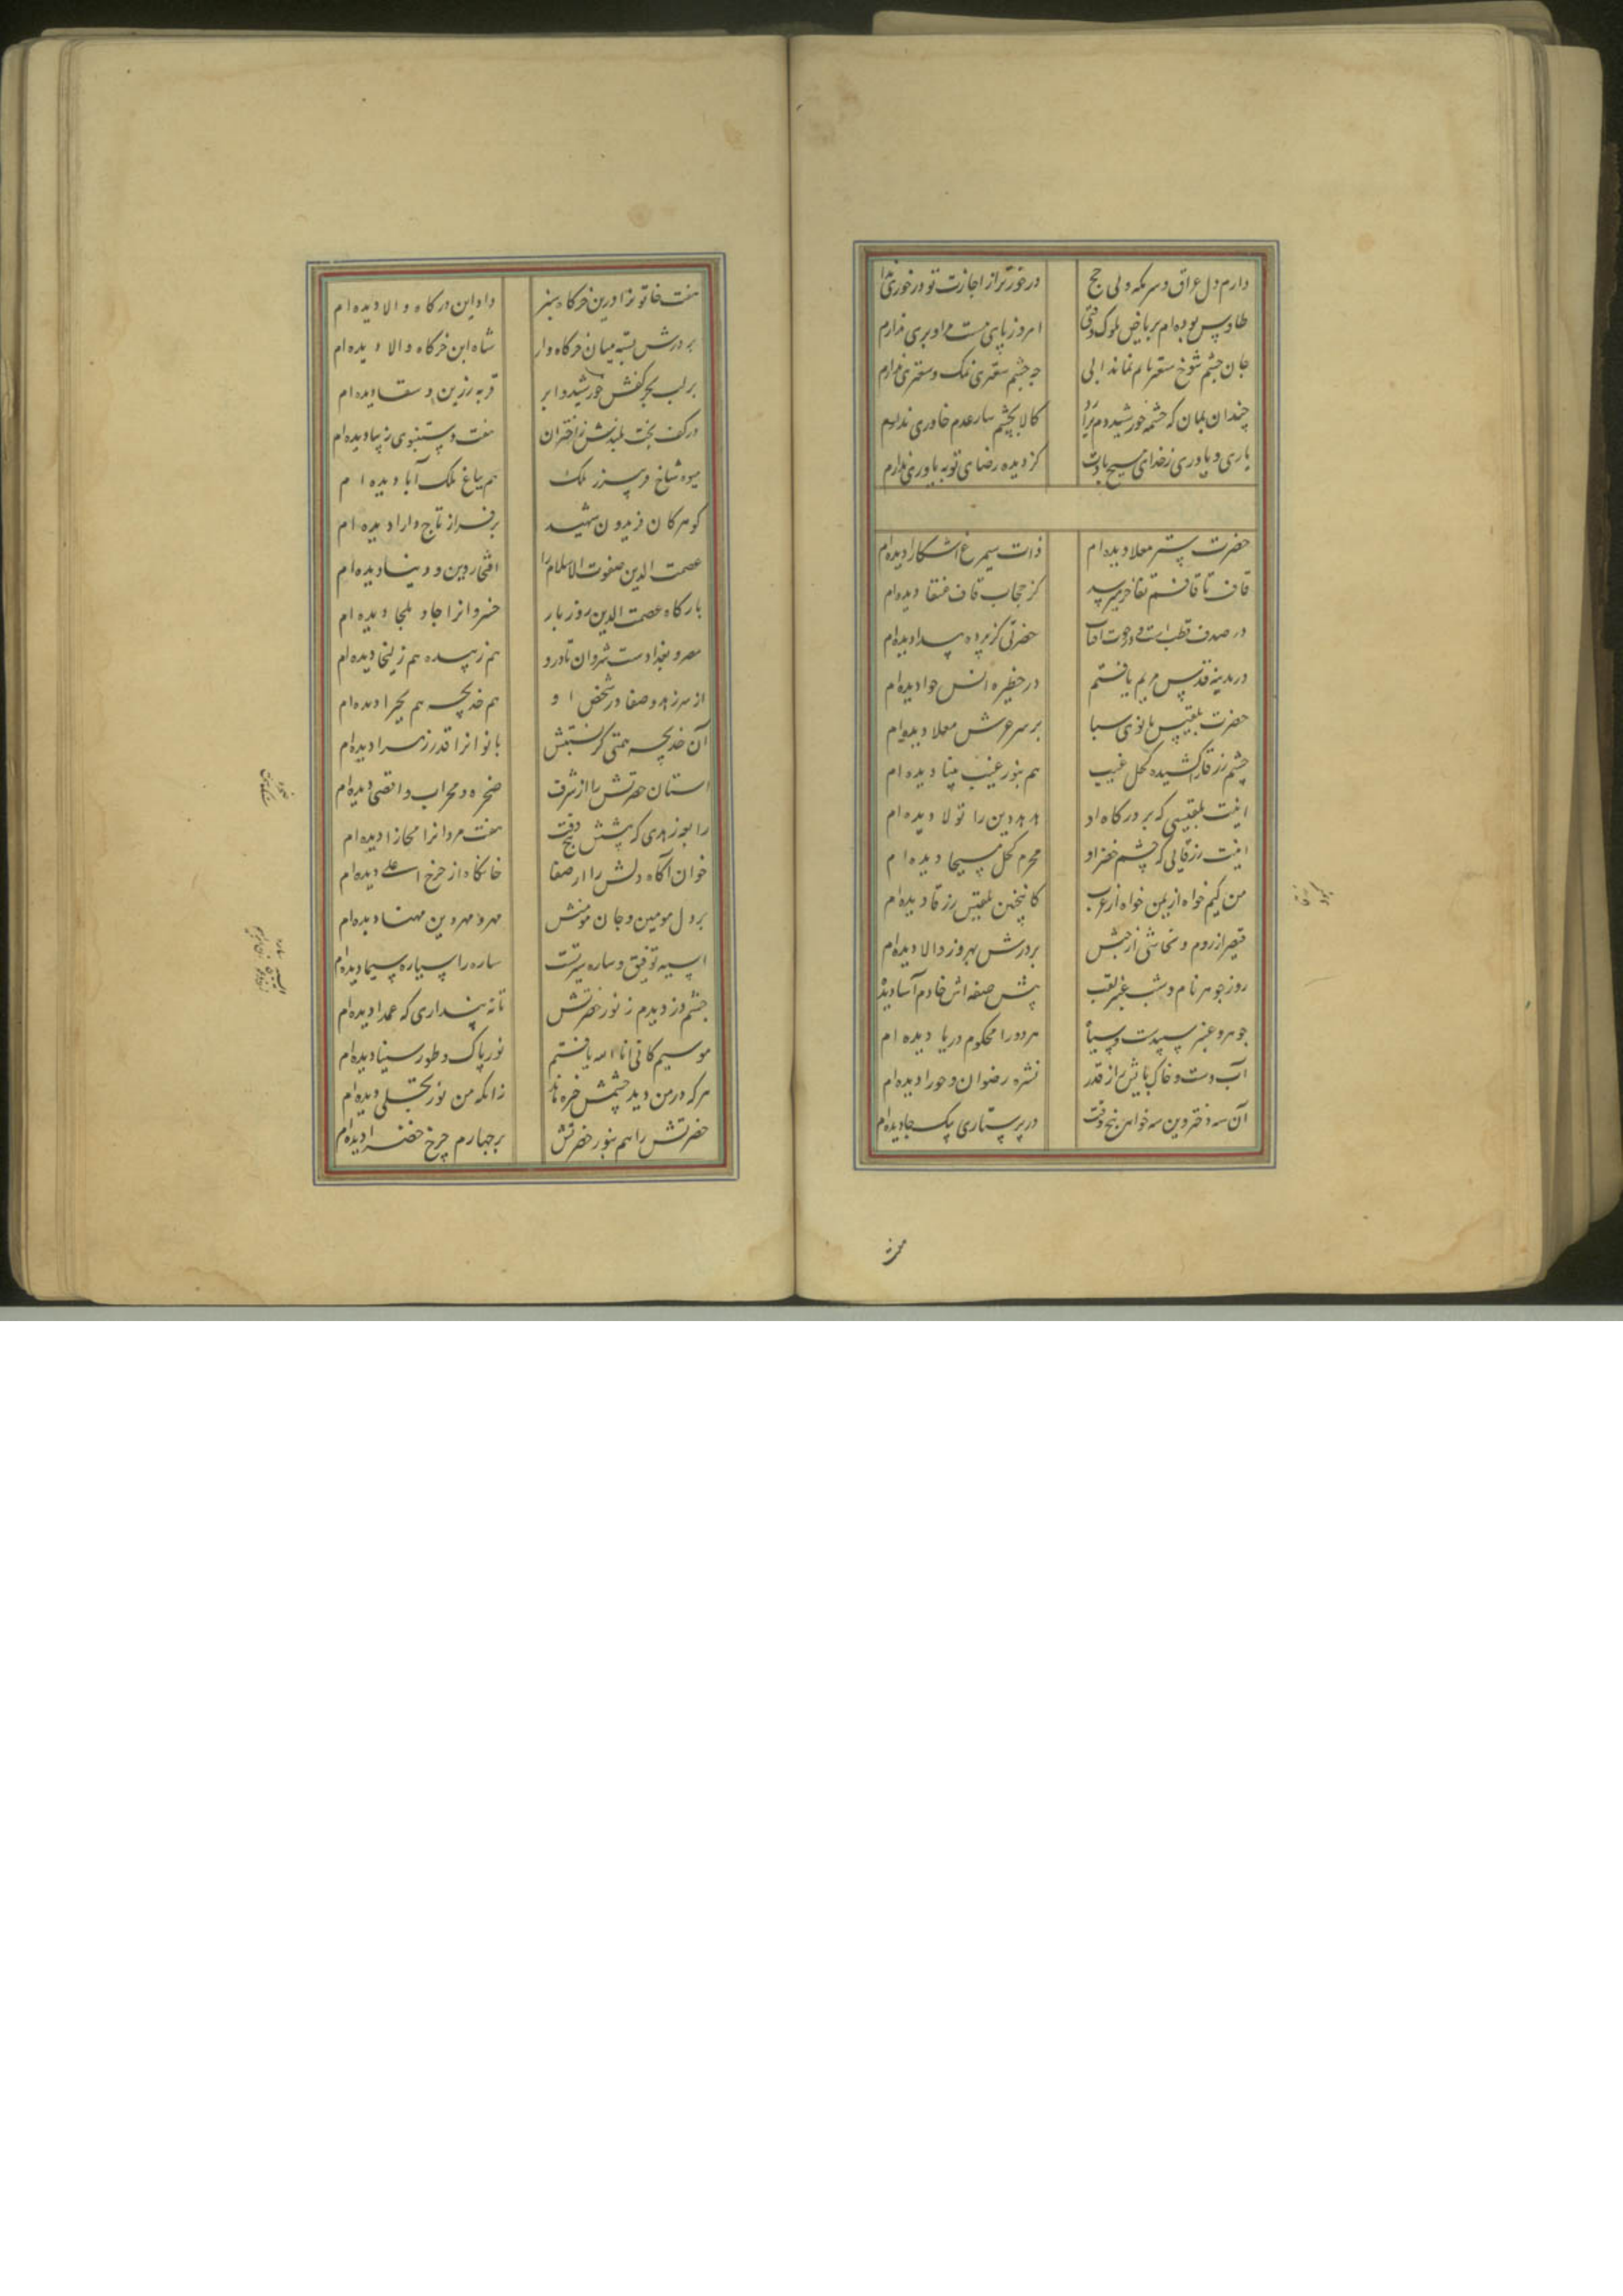 دارم دل عراق و سر مکه و پی حج
درخورتر از اجازت تو درخوری ندارم
طاوس بوده‌ام بریاض ملوک وقتی
امروز پای هست مرا و پری ندارم
جان چشم شوخ
چه چشم سقری نمک و سقری ندارم
چندان بمان که چشمه خورشید دم برآرد
کالا بچشم سار عدم خاوری ندارم
یاری و یاوری ز خدای مسیح بادت
کز دیده رضای تو به یاوری ندارم
حضرت ستر معلا دیده‌ام
ذات سیمرغ آشکارا دیده‌ام
قاف تا قافم تفاخر میرسد
کز حجاب قاف عنقا دیده‌ام
در صدف قطب است و در حوت آفتاب
حضرتی کز پرده پیدا دیده‌ام
در مدینه قدس مریم یافتم
در حظیره انس حوا دیده‌ام
حضرت بلقیس بانوی سبا
بر سر عرش معلا دیده‌ام
چشم زرقا را کشیده کحل غیب
هم بنور غیب بینا دیده‌ام
اینت بلقیسی که بر درگاه او
هدهد دین را تولا دیده‌ام
اینت زرقایی که چشم خضر او
محرم کحل مسیحا دیده‌ام
من کیم خواه از یمن خواه از عرب
کاینچنین بلقیس زرقا دیده‌ام
قیصر از روم و نجاشی از حبش
بر درش بهروز و لالا دیده‌ام
روز جوهر نام و شب عنبر لقب
پیش صفه‌اش خادم آسا دیده
جوهر و عنبر سپیدست و سیاه
هر دو را محکوم دریا دیده‌ام
آب دست و خاک پایش را ز قدر
نشره رضوان و حورا دیده‌ام
آن سه دختر وین سه خواهر پنج وقت
در پرستاری یک جا دیده‌ام
هفت
هفت خاتون را درین خرگاه سبز
داد این درگاه والا دیده‌ام
بر درش بسته میان خرگاه وار
شاه این خرگاه والا دیده‌ام
بر لب بحر کفش خورشید و ابر
قربه زرین و سقا دیده‌ام
در کف بخت بلندش ز اختران
هفت دستنبوی زیبا دیده‌ام
میوه شاخ فریبرز ملک
هم بباغ ملک آبا دیده‌ام
گوهر کان فریدون شهید
بر فراز تاج دارا دیده‌ام
عصمت الدین صفوت الاسلام را
افتخار دین و دنیا دیده‌ام
بارگاه عصمت الدین روز بار
خسروان را جا و ملجا دیده‌ام
مصر و بغدادست شروان تا درو
هم زبیده هم زلیخا دیده‌ام
از سر زهد و صفا در شخص او
هم خدیجه هم بحیرا دیده‌ام
آن خدیجه همتی کز نسبتش
بانوان را قدر زهرا دیده‌ام
آستان حضرتش را از شرف
صخره و محراب و اقصی دیده‌ام
رابعه زهدی که پیشش پنج وقت
هفت مردان را مجازا دیده‌ام
خوان آگاه دلش را از صفا
خانگاه از چرخ اعلی دیده‌ام
بر دل مومین و جان مونش
مهر و مهر دین مهنا دیده‌ام
آسیه توفیق و ساره سیرتست
ساره را سیاره سیما دیده‌ام
چشم دزدیدم ز نور حضرتش
تا نپنداری که عمدا دیده‌ام
موسیم کانی انا الله یافتم
نور پاک و طور سینا دیده‌ام
هر که در من دید چشمش خیره ماند
زانکه من نور تجلی دیده‌ام
حضرتش را هم بنور حضرتش
بر چهارم چرخ خضرا دیده‌ام